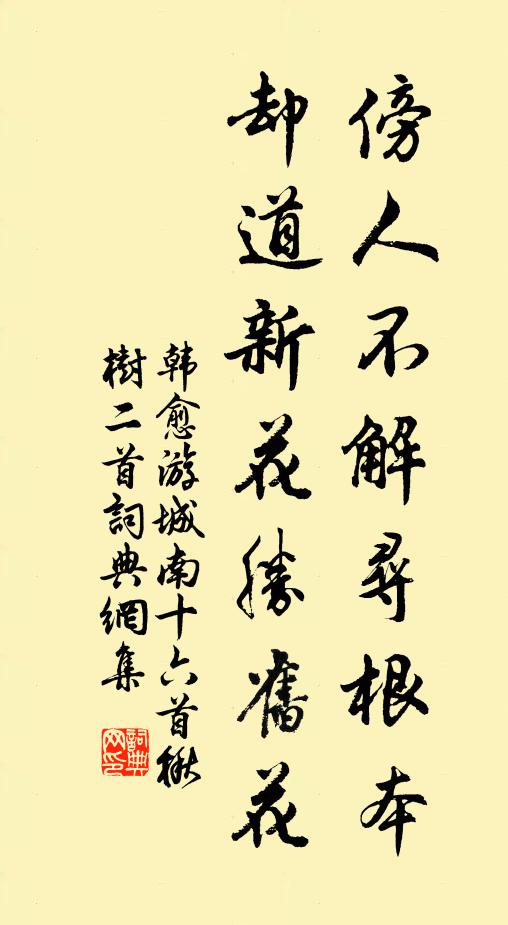 傍人不解尋根本
却道新花勝舊花
韓愈游城南十六首楸
樹二首詞典網集
詞典網印